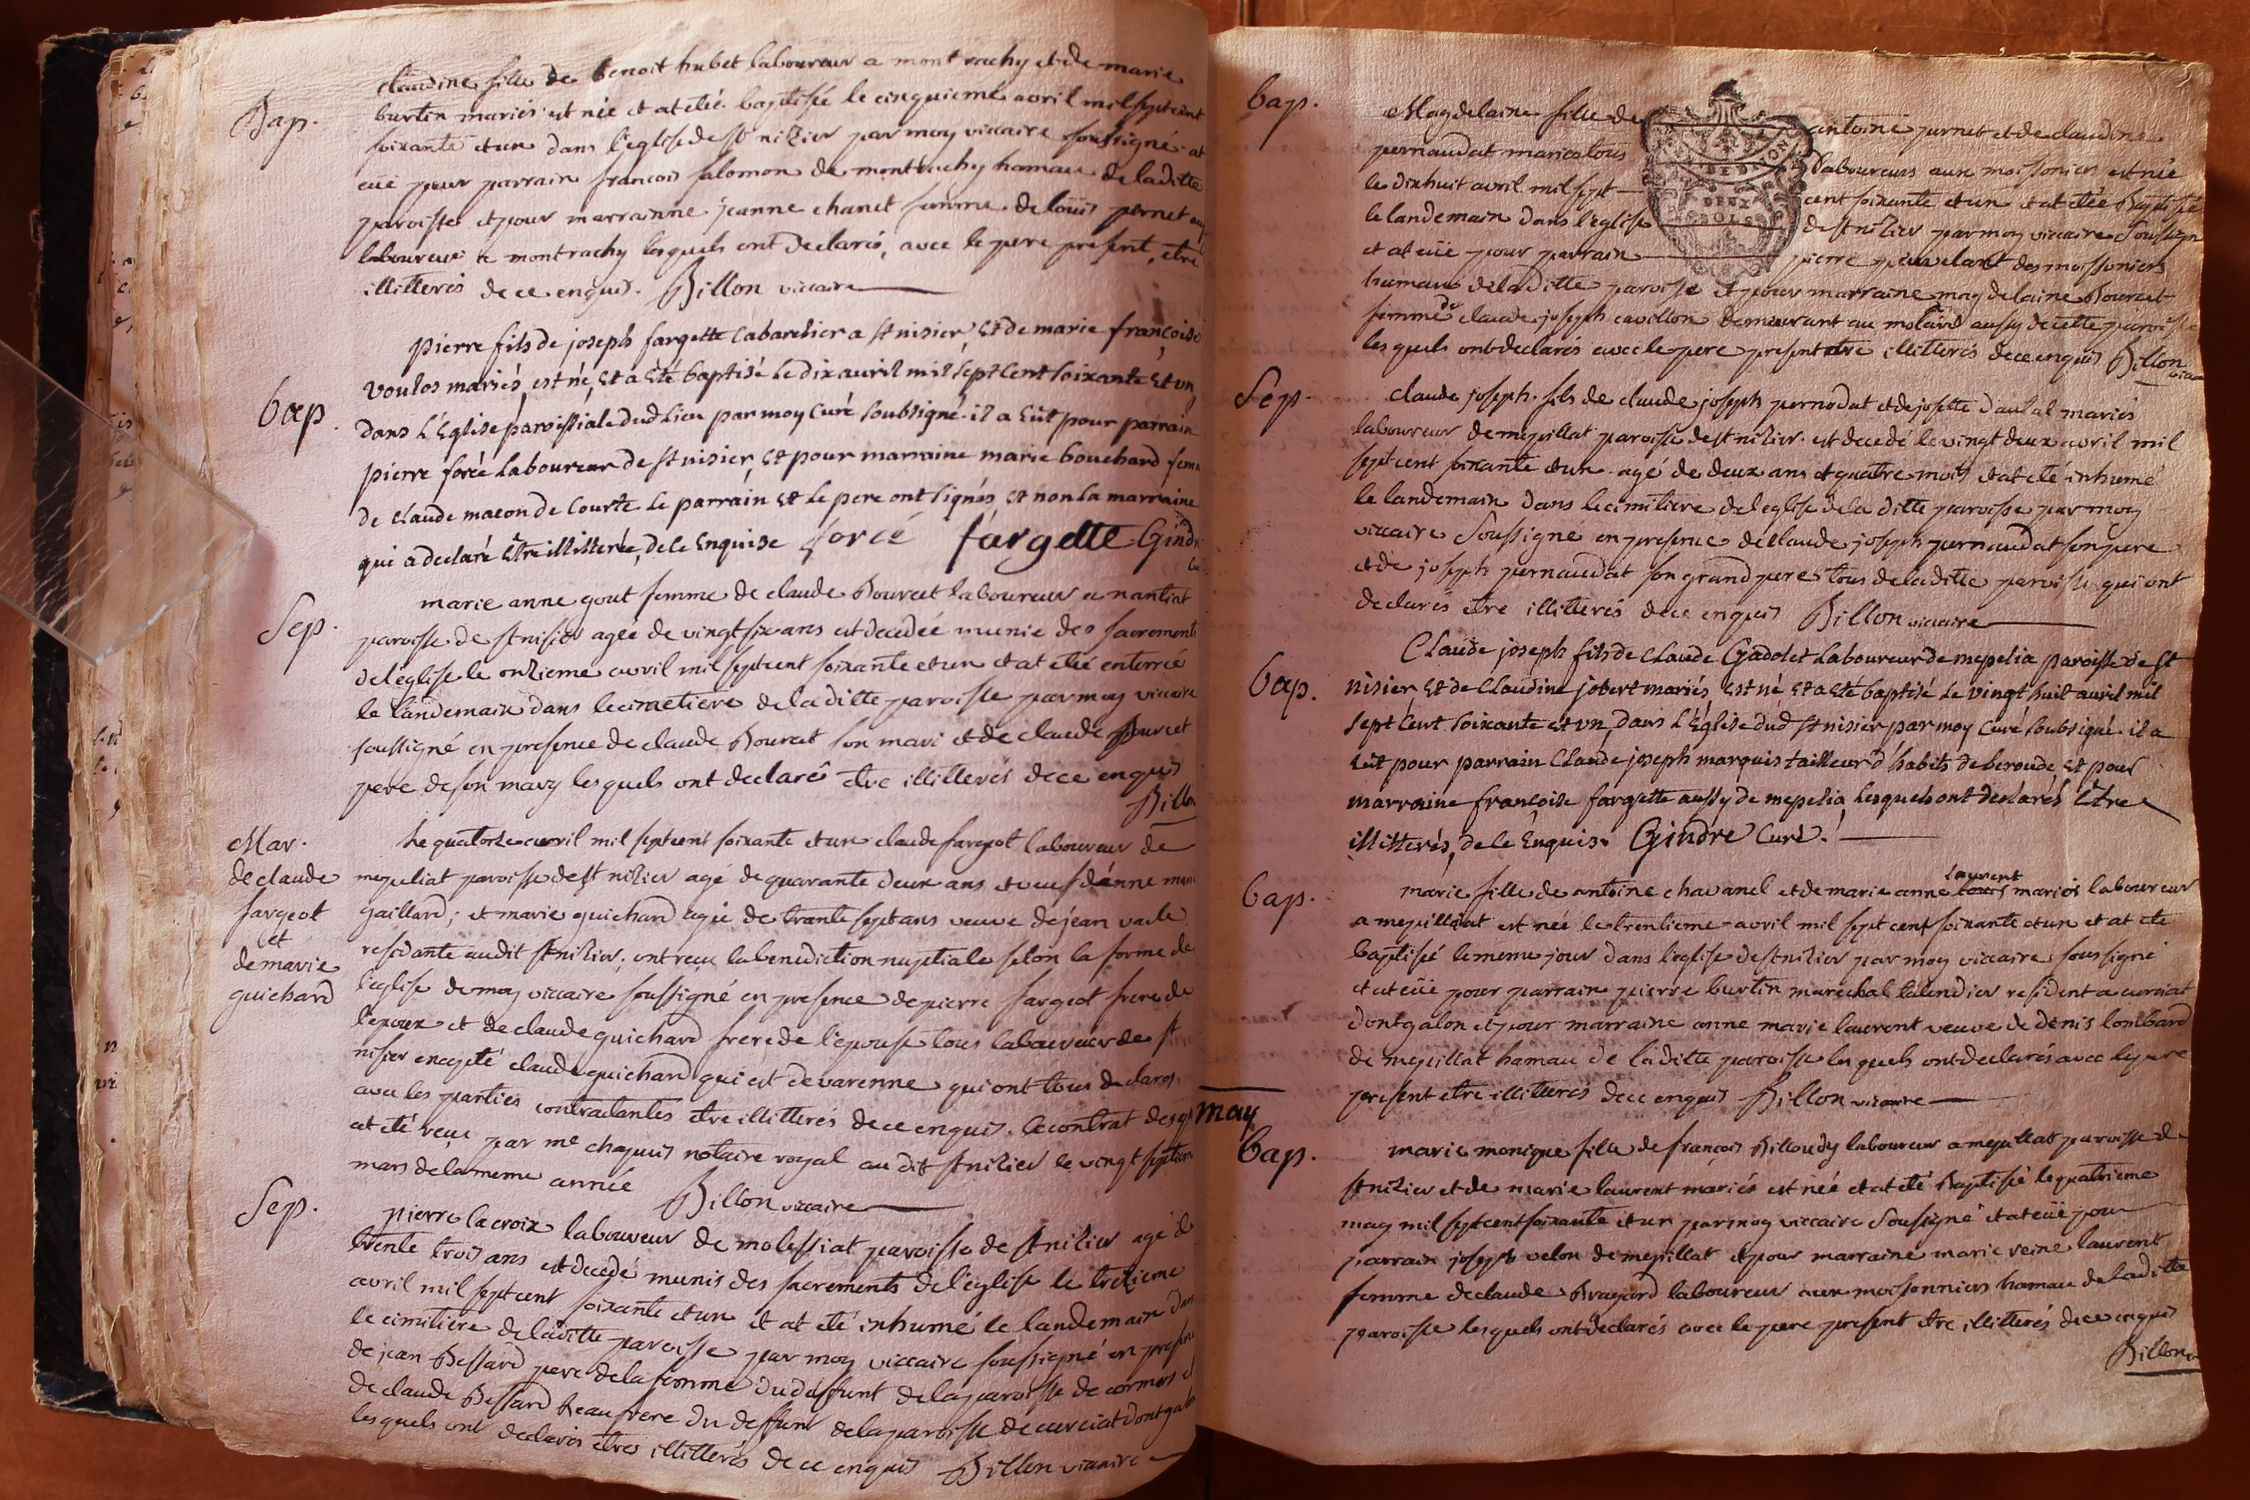 Bap.
claudine fille de benoit hubet laboureur a montrachy et de marie
burtin mariés est née et at eté baptisée le cinquieme avril mil sept cent
soixante et un dans l'eglise de st nizier par moy viccaire soussigné at
eüe pour parrain francois salomon de montrachy hamau de la ditte
paroisse et pour marrainne jeanne chanet femme de loüis pernet
laboureur a montrachy lesquels ont declarés, avec le pere present, etre
illitterés de ce enquis. Billon viccaire
bap.
pierre fils de joseph fargette cabaretier a st nisier, et de marie françoise
voulos mariés, est né, et a été baptisé le dix avril mil sept cent soixante et un
dans l'église paroissiale dud lieu par moy curé soubsigné. il a eüt pour parrain
pierre forcé laboureur de st nisier, et pour marraine marie bouchard
de claude macon de courte le parrain et le pere ont signés et non la marraine
qui a declaré être illitterée, de ce enquise forcé fargette Gindre
Sep.
marie anne gout femme de claude Bourcet laboureur a nantiat
paroisse de st nisier agée de vingt six ans est decedée munie des sacrements
de l'eglise le onzieme avril mil sept cent soixante et un et at eté enterrée
le landemain dans le cimetiere de la ditte paroisse par moy viccaire
soussigné en presence de claude Bourcet son mari et de claude Bourcet
pere de son mary lesquels ont declaré etre illitterés de ce enquis
Billon
Mar.
de claude
fargeot
et
de marie
guichard
Le quatorze avril mil sept cent soixante et un claude fargeot laboureur de
mepeliat paroisse de st nizier agé de quarante deux ans et veuf d'anne marie
gaillard; et marie guichard agée de trante sept ans veuve de jean
residante au dit st nizier, ont reçu la benediction nuptiale selon la forme de
l'eglise de moy viccaire soussigné en presence de pierre fargeot frere de
l'epoux et de claude guichard frere de l'epouse tous laboureur de st
nisier excepté claude guichard qui est de varenne qui ont tous declarés
avec les parties contractantes etre illitterés de ce enquis. le contrat
at eté reçu par me chapuis notaire royal au dit st nizier le vingt septieme
mars de la meme année Billon viccaire
Sep.
pierre lacroix laboureur de molessiat paroisse de st nizier agé de
trente trois ans est decedé munis des sacrements de l'eglise le trezieme
avril mil sept cent soixante et un et at eté inhumé le landemain dans
le cimitiere de la ditte paroisse par moy viccaire soussigné en presence
de jean Bessard pere de la femme du deffunt de la paroisse de cormos et
de claude Bessard Beaufrere du deffunt de la paroisse de curciat dontgalon
lesquels ont declarés etres illitterés de ce enquis Billon viccaire
bap.
Magdelaine fille de antoine pernet et de claudine
pernaudat marieatous Laboureurs aux moissonier est née
le dixhuit avril mil sept cent soixante et un et at etée Baptisée
le landemain dans l'eglise de st nizier par moy viccaire soussigné
et at eüe pour parrain pierre des moissoniers
DEUX
SOLS
hamau de la ditte paroisse et pour marraine magdelaine Bourcet
femme de claude joseph cavillon demeurant au molard aussy de cette paroisse
lesquels ont declarés avec le pere present etre illitterés de ce enquis Billon
Sep.
claude joseph fils de claude joseph pernodat et de josette dautal mariés
laboureur de mepillat paroisse de st nizier est decedé le vingt deux avril mil
sept cent soixante et un agé de deux ans et quatre mois et at eté inhumé
le landemain dans le cimitiere de l'eglise de la ditte paroisse par moy
viccaire soussigné en presence de claude joseph pernaudat son pere
et de joseph pernaudat son grand pere tous de la ditte paroisse qui ont
declarés etre illiterés de ce enquis Billon viccaire
bap.
Claude joseph fils de claude Gadolet laboureur de mepelia paroisse de st
nisier et de claudine jobert mariés est né et a eté baptisé le vingt huit avril mil
sept cent soixante et un, dans l'église dud st nisier par moy curé soubsigné. il a
eüt pour parrain claude joseph marquis tailleur d'habits de beroude, et pour
marraine françoise fargette aussy de mepelia, lesquels ont declarés être
illitterés, de ce enquis. Gindre curé.
bap.
marie fille de antoine chavanel et de marie anne laurent mariés laboureur
a mepilliat est née le trentieme avril mil sept cent soixante et un et at eté
baptisée le meme jour dans l'eglise de st nizier par moy viccaire soussigné
et at eüe pour parrain pierre burtin marechal talendier resident a curciat
dontgalon et pour marraine anne marie laurent veuve de denis lombard
de mepillat hamau de la ditte paroisse lesquels ont declarés avec le pere
present etre illitterés de ce enquis Billon viccaire
may
bap.
marie monique fille de françois Billoudy laboureur a mepillat paroisse de
st nizier et de marie laurent mariés est née et at eté Baptisée le quatrieme
may mil sept cent soixante et un par moy viccaire soussigné et at eüe pour
parrain joseph velon de mepillat et pour marraine marie reine laurent
femme de claude Bragard laboureur aux moissonniers hamau de la ditte
paroisse lesquels ont declarés avec le pere present etre illitterés de ce enquis
Billon